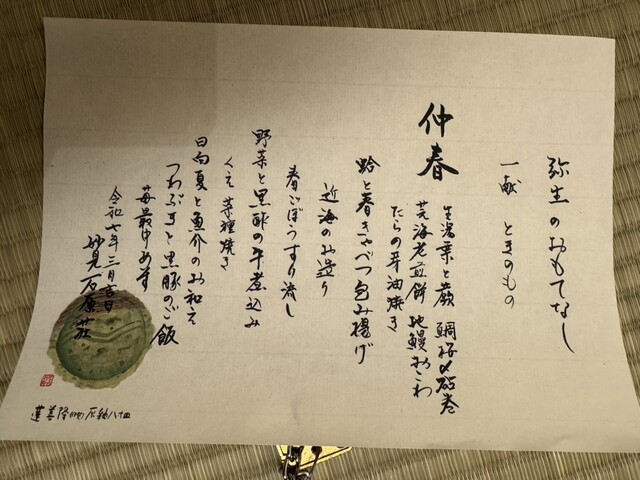 弥生のおもてなし
一献 ときのもの
仲春
生湯葉と蕨 鯛桜〆砧巻
芸海老煎餅 地鰻おこわ
たらの芽油焼き
蛤と春きゃべつ包み揚げ
近海のお造り
春ごぼうすり流し
野菜と黒酢の 煮込み
くえ 菜種焼き
日向夏と魚介のお和え
つわぶきと黒豚のご飯
苺最中
令和七年三月吉日
妙見石原荘